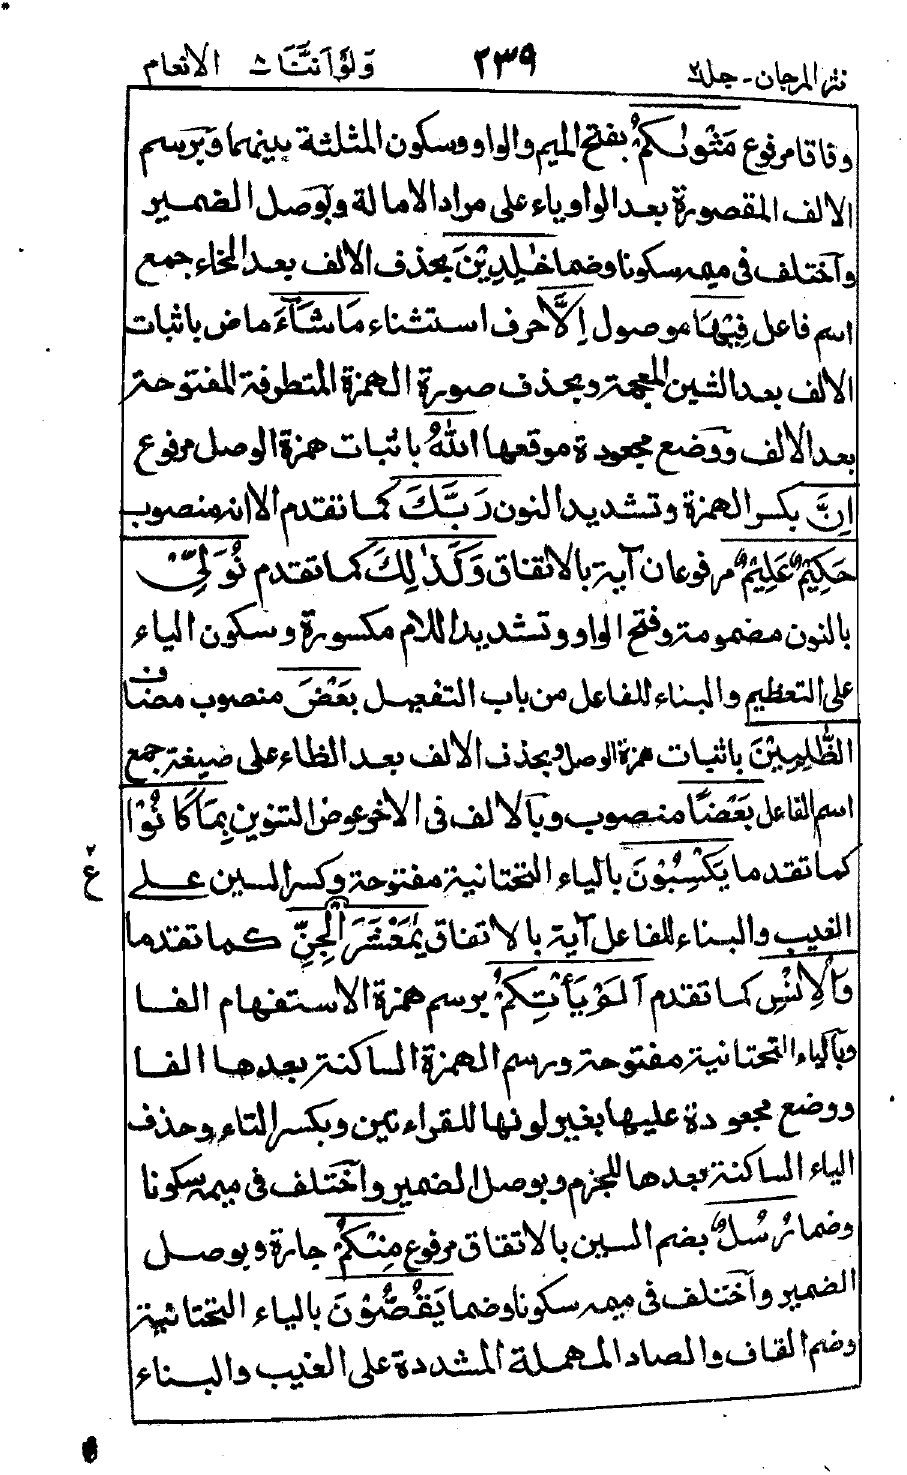 نثر المرجان - جلد ٢ ٢٣٩ وَلَوْ اَنَّنَا ٨ الانعام
وفاقا مرفوع مَثْوٰىكُمْ بفتح الميم والواو وسكون المثلثة بينهما وبَرسم
الالف المقصورة بعد الواو ياء على مراد الامالة وبوَصل الضمير
وآختلف فى ميمه سكونا وضما خٰلِدِيْنَ بحذف الالف بعد الخاء جمع
اسم فاعل فِيْهَا موصول اِلَّا حرف استثناء مَا شَآءَ ماض باثبات
الالف بعد الشين المعجمة وبحذف صورة الهمزة المتطرفة المفتوحة
بعد الالف ووضع مجعودة موقعها اللهُ باثبات همزة الوصل مرفوع
اِنَّ بكسر الهمزة وتشديد النون رَبَّكَ كما تقدم الا انه منصوب
حَكِيْمٌ عَلِيْمٌ مرفوعان آية بالاتفاق وَكَذٰلِكَ كما تقدم نُوَلِّيْ
بالنون مضمومة وفتح الواو وتشديد اللام مكسورة وسكون الياء
على التعظيم والبناء للفاعل من باب التفعيل بَعْضَ منصوب مضاف
الظّٰلِمِيْنَ باثبات همزة الوصل وبحذف الالف بعد الظاء على صيغة جمع
اسم الفاعل بَعْضًا منصوب وبالالف فى الاخر عوض التنوين بِمَا كَانُوْا
كما تقدما يَكْسِبُوْنَ بالياء التحتانية مفتوحة وكسر السين على
الغيب والبناء للفاعل آية بالاتفاق يٰمَعْشَرَ الْجِنِّ كما تقدما
وَالْاِنْسِ كما تقدم اَلَمْ يَأْتِكُمْ برسم همزة الاستفهام الفا
وبالياء التحتانية مفتوحة ورسم الهمزة الساكنة بعدها الفا
ووضع مجعودة عليها بغير لونها للقراءتين وبكسر التاء وحذف
الياء الساكنة بعدها للجزم وبوصل الضمير واختلف فى ميمه سكونا
وضما رُسُلٌ بضم السين بالاتفاق مرفوع مِنْكُمْ جارة وبوصل
الضمير وآختلف فى ميمه سكونا وضما يَقُصُّوْنَ بالياء التحتانية
وضم القاف والصاد المهملة المشددة على الغيب والبناء
ع ٢